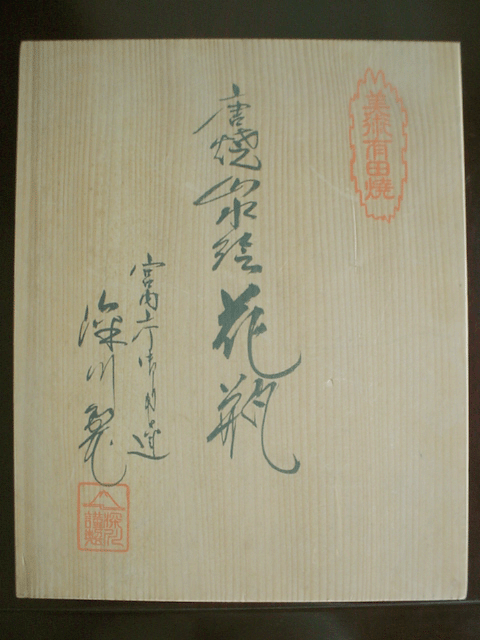 美術有田焼
唐焼山水絵花瓶
宮内庁御用達
深川製
深川
謹製